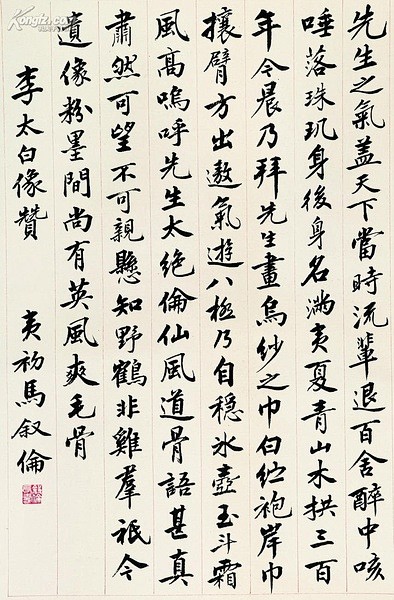 先生之氣蓋天下當時流輩退百舍醉中咳
唾落珠玑身後身名满夷夏青山木拱三百
年今晨乃拜先生畫烏紗之巾白紵袍岸巾
攘臂方出遨氣遊八極乃自穩氷壺玉斗霜
風高嗚呼先生太絶倫仙風道骨語甚真
肅然可望不可親懸知野鶴非雞羣祇今
遺像粉墨間尚有英風爽毛骨
李太白像贊 夷初馬叙倫